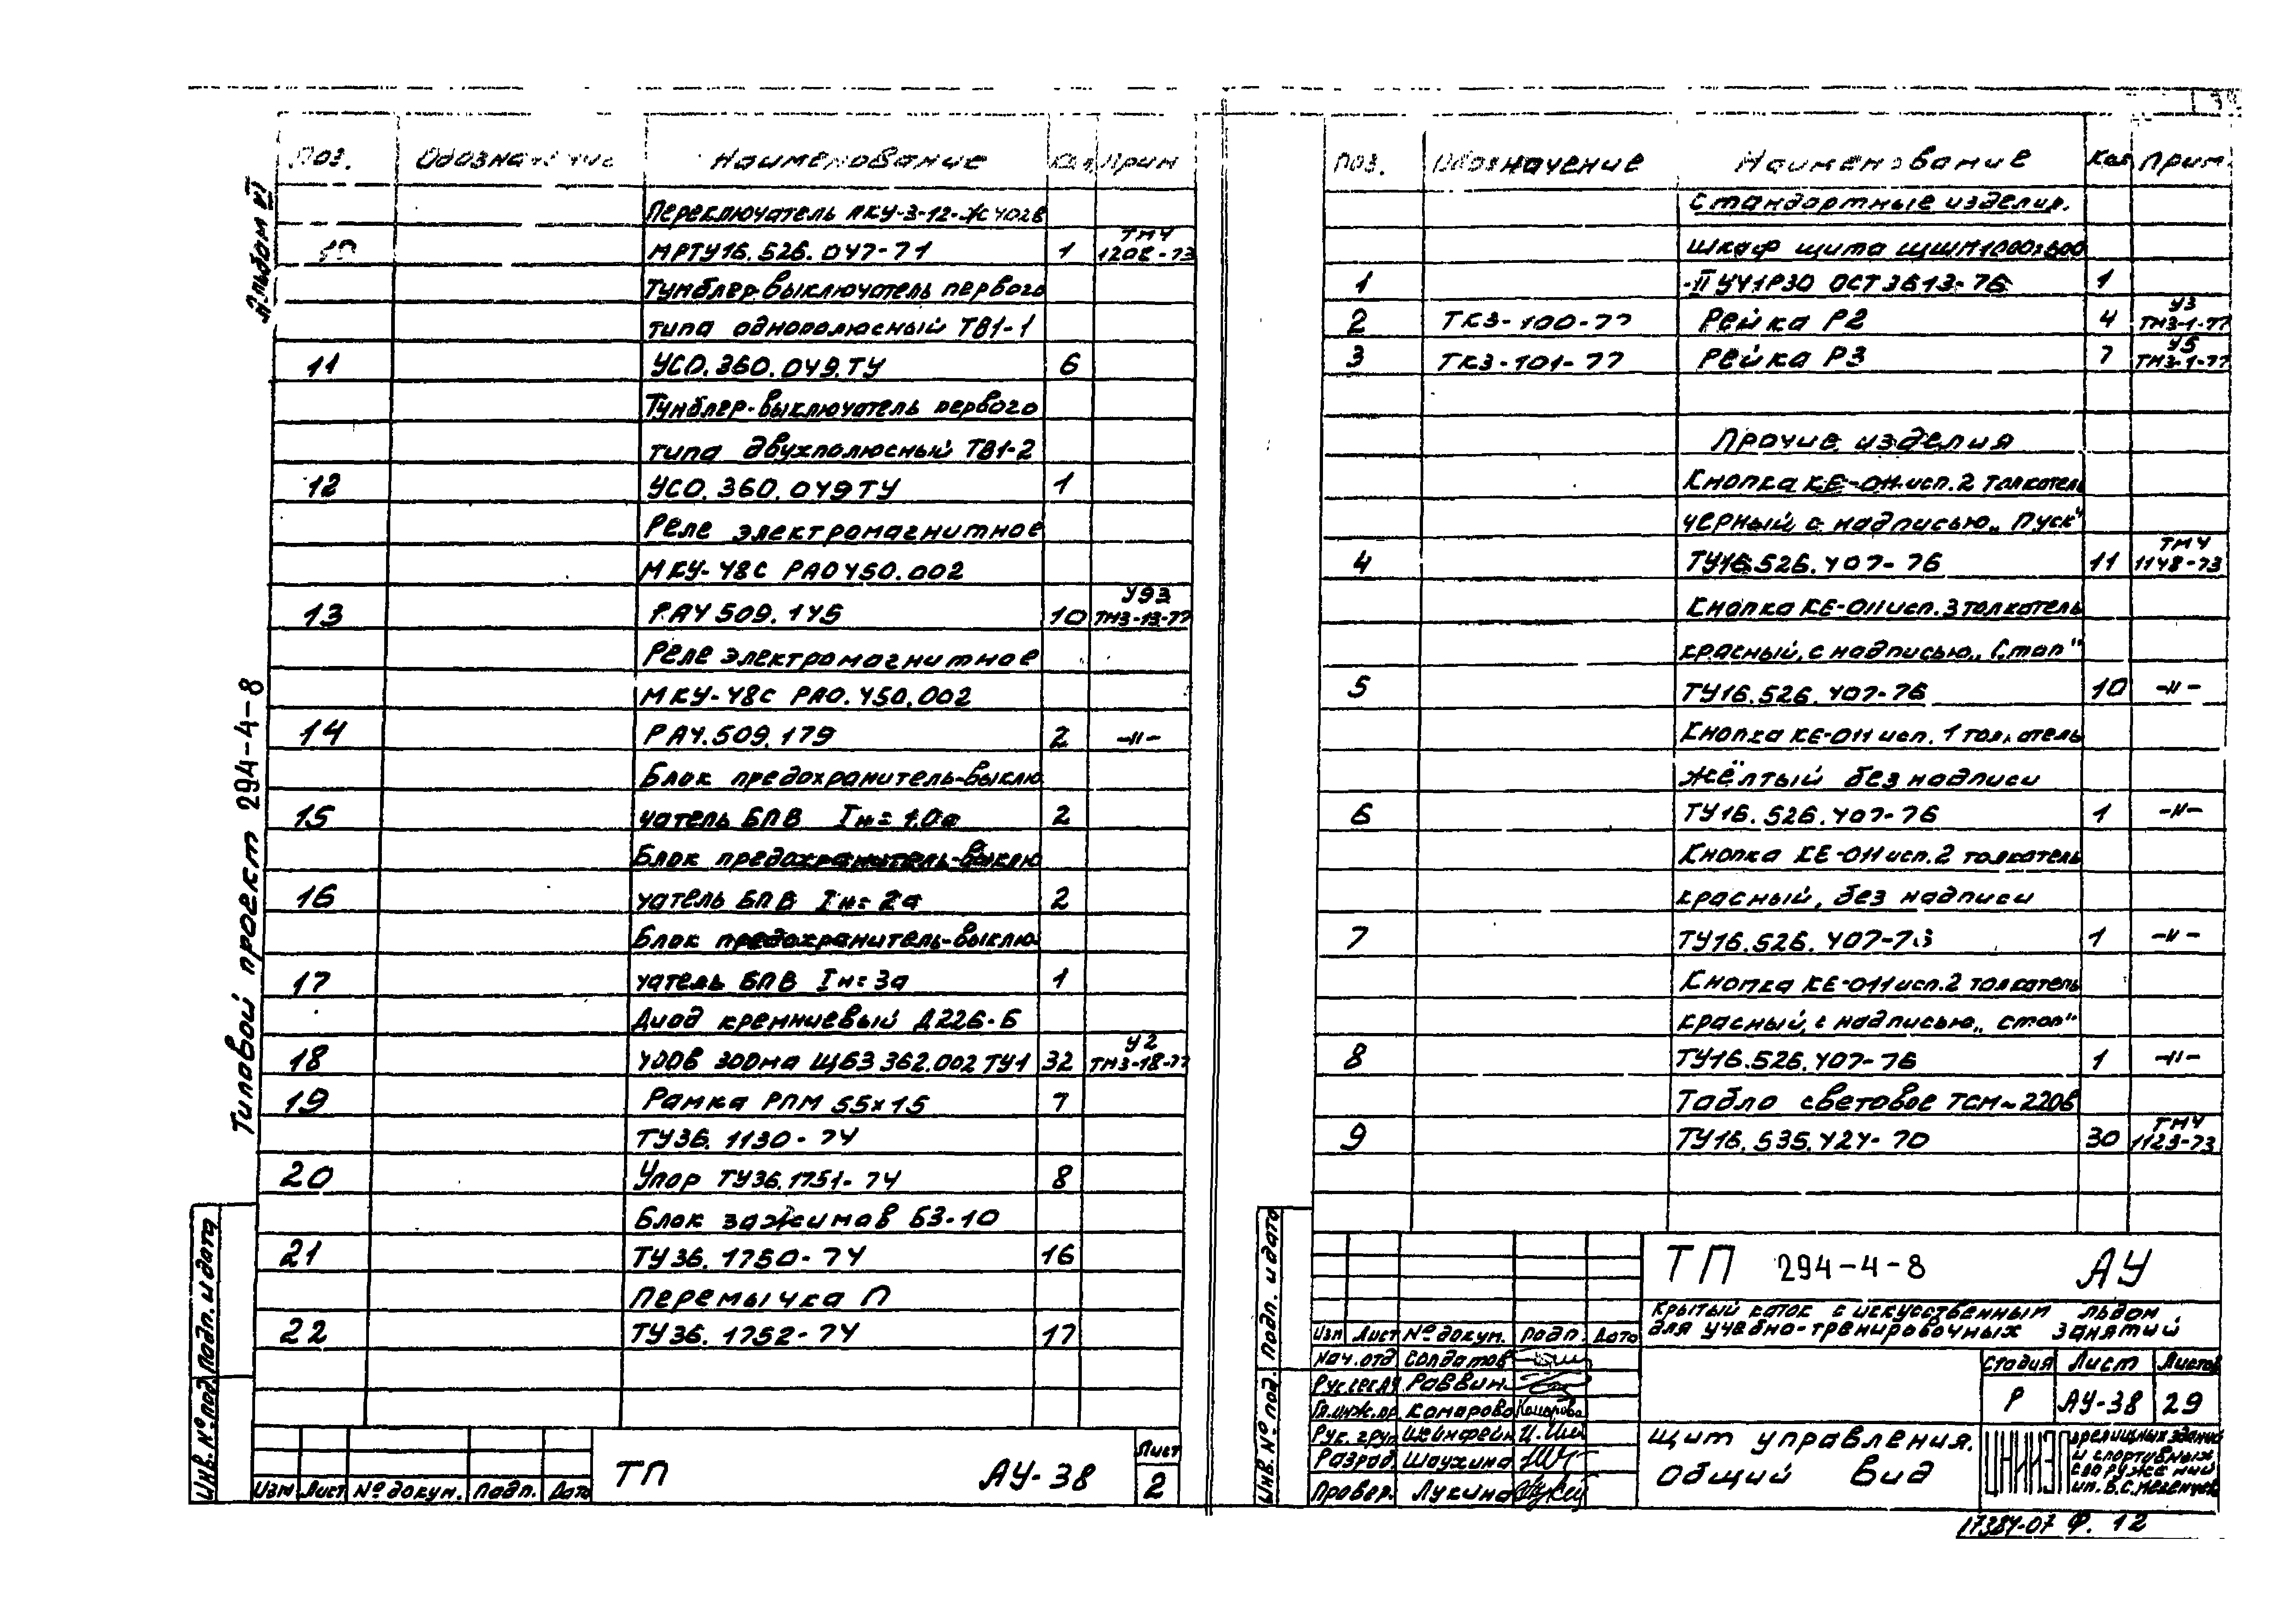 Альбом VI
Типовой проект 294-4-8
Поз. Обозначение Наименование Кол Прим
Переключатель ПКУ-3-12-
10 МРТУ16.526.047-71 1 ТМ4 1208-73
Тумблер-выключатель первого
типа однополюсный ТВ1-1
11 УСО.360.049.ТУ 6
Тумблер-выключатель первого
типа двухполюсный ТВ1-2
12 УСО.360.049ТУ 1
Реле электромагнитное
МКУ-48С РА0450.002
13 РА4 509.145 10 У93 ТМ3-13-77
Реле электромагнитное
МКУ-48С РА0.450.002
14 РА4.509.179 2 -"-
Блок предохранитель-выклю
15 чатель БПВ Iн=1,0а 2
Блок предохранитель-выклю
16 чатель БПВ Iн=2а 2
Блок предохранитель-выклю-
17 чатель БПВ Iн=3а 1
Диод кремниевый Д226-Б
18 400в 300ма ЩБ3 362.002 ТУ1 32 У2 ТМ3-18-77
19 Рамка РПМ 55х15 7
ТУ36.1130-74
20 Упор ТУ36.1751-74 8
Блок зажимов БЗ-10
21 ТУ36.1750-74 16
Перемычка П
22 ТУ36.1752-74 17
Изм Лист № докум. Подп. Дата
ТП АУ-38
Лист
2
Инв. № под. Подп. и дата
Поз. Обозначение Наименование Кол Прим.
Стандартные изделия.
Шкаф щита ЩШМ1000х600
1 -II УЧ1Р30 ОСТ 3613-76 1
2 ТК3-100-77 Рейка Р2 4 У3 ТМ3-1-77
3 ТК3-101-77 Рейка Р3 7 У5 ТМ3-1-77
Прочие изделия
Кнопка КЕ-011 исп.2 толкатель
черный с надписью „Пуск"
4 ТУ16.526.407-76 11 ТМ4 1148-73
Кнопка КЕ-011 исп.3 толкатель
красный, с надписью „Стоп"
5 ТУ16.526.407-76 10 -"-
Кнопка КЕ-011 исп.1 толкатель
жёлтый без надписи
6 ТУ16.526.407-76 1 -"-
Кнопка КЕ-011 исп.2 толкатель
красный, без надписи
7 ТУ16.526.407-76 1 -"-
Кнопка КЕ-011 исп.2 толкатель
красный, с надписью „стоп"
8 ТУ16.526.407-76 1 -"-
Табло световое ТСМ~220в
9 ТУ16.535.424-70 30 ТМ4 1123-73
ТП 294-4-8 АУ
Крытый каток с искусственным льдом
для учебно-тренировочных занятий
Изм Лист № докум. Подп. Дата
Нач.отд Солдатов
Рук.сект.АУ Раввин
Гл.инж.пр. Комарова Комарова
Рук. груп. Шейнфейн
Разраб. Шаухина
Провер. Лукина
Стадия Лист Листов
Р АУ-38 29
Щит управления.
Общий вид
ЦНИИЭП
зрелищных зданий
и спортивных
сооружений
им. Б.С. Мезенцева
Инв. № под. Подп. и дата
17384-07 Ф. 12